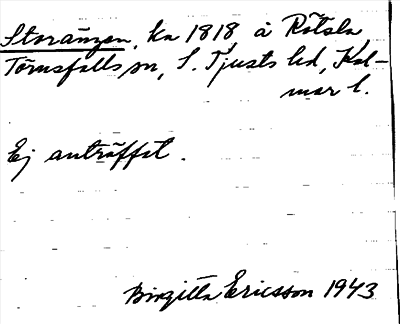 Storängen, ka 1818 å Rötsla,
Törnsfalls sn, S. Tjusts hd, Kal-
mar l.
Ej anträffat.
Birgitta Ericsson 1943